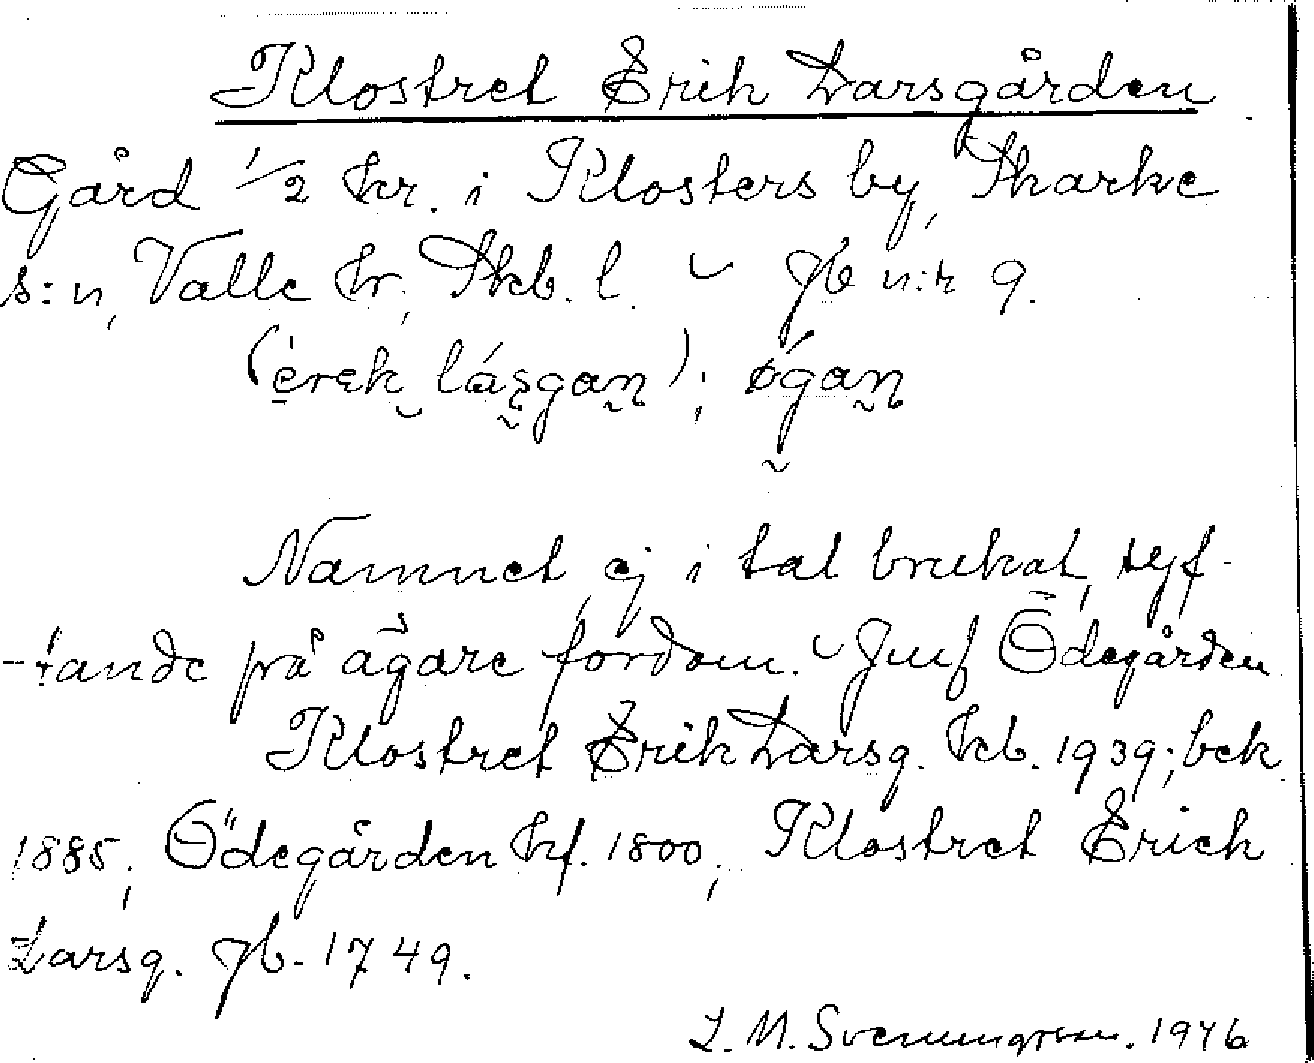 Klostret Erik Larsgården
Gård 1/2 kr. i Klosters by, Skarke
s:n, Valle hr, Skb. l. – Jb n:r 9.
(èrek lázgan); øgan
Namnet, ej i tal brukat, syf-
-tande på ägare fordom. – Jmf Ödegården
Klostret Erik Larsg. kb. 1939; bek
1885; Ödegården Kf. 1800; Klostret Erich
Larsg. Jb. 1749.
L. M. Svenungsson. 1946